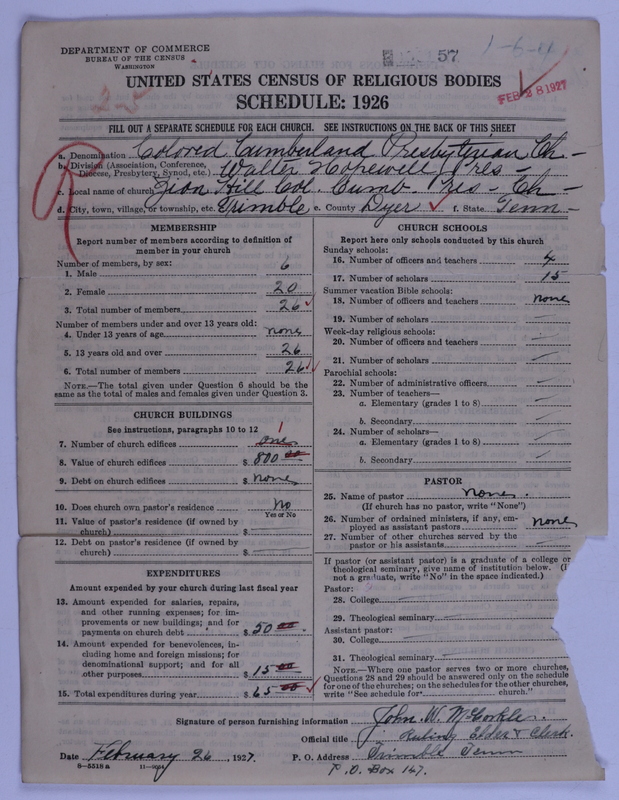 DEPARTMENT OF COMMERCE
BUREAU OF THE CENSUS
WASHINGTON
57
1-6-4
FEB 28 1927
25
UNITED STATES CENSUS OF RELIGIOUS BODIES
SCHEDULE: 1926
FILL OUT A SEPARATE SCHEDULE FOR EACH CHURCH. SEE INSTRUCTIONS ON THE BACK OF THIS SHEET
R
a. Denomination Colored Cumberland Presbyterian Ch-
b. Division (Association, Conference, Diocese, Presbytery, Synod, etc.) Walter Hopewell Pres-
c. Local name of church Zion Hill Col. Cumb. Pres- Ch-
d. City, town, village, or township, etc. Trimble e. County Dyer f. State Tenn-
MEMBERSHIP
Report number of members according to definition of
member in your church
Number of members, by sex:
1. Male 6
2. Female 20
3. Total number of members 26
Number of members under and over 13 years old:
4. Under 13 years of age none
5. 13 years old and over 26
6. Total number of members 26
NOTE.—The total given under Question 6 should be the
same as the total of males and females given under Question 3.
CHURCH BUILDINGS
See instructions, paragraphs 10 to 12
7. Number of church edifices one 1
8. Value of church edifices $ 800 00
9. Debt on church edifices $ none
10. Does church own pastor's residence No
Yes or No
11. Value of pastor's residence (if owned by
church) $
12. Debt on pastor's residence (if owned by
church) $
EXPENDITURES
Amount expended by your church during last fiscal year
13. Amount expended for salaries, repairs,
and other running expenses; for im-
provements or new buildings; and for
payments on church debt $ 50 00
14. Amount expended for benevolences, in-
cluding home and foreign missions; for
denominational support; and for all
other purposes $ 15 00
15. Total expenditures during year $ 65 00
CHURCH SCHOOLS
Report here only schools conducted by this church
Sunday schools:
16. Number of officers and teachers 4
17. Number of scholars 15
Summer vacation Bible schools:
18. Number of officers and teachers none
19. Number of scholars
Week-day religious schools:
20. Number of officers and teachers
21. Number of scholars
Parochial schools:
22. Number of administrative officers
23. Number of teachers—
a. Elementary (grades 1 to 8)
b. Secondary
24. Number of scholars—
a. Elementary (grades 1 to 8)
b. Secondary
PASTOR
25. Name of pastor none.
(If church has no pastor, write "None")
26. Number of ordained ministers, if any, em-
ployed as assistant pastors none
27. Number of other churches served by the
pastor or his assistants
If pastor (or assistant pastor) is a graduate of a college or
theological seminary, give name of institution below. (I
not a graduate, write "No" in the space indicated.)
Pastor:
28. College
29. Theological seminary
Assistant pastor:
30. College
31. Theological seminary
NOTE.—Where one pastor serves two or more churches,
Questions 28 and 29 should be answered only on the schedule
for one of the churches; on the schedules for the other churches,
write "See schedule for church."
Signature of person furnishing information John. W. McCorkle.
Official title Ruling Elder & Clerk.
Date February 26, 1927. P. O. Address Trimble Tenn
8-5518 a
P.O. Box 147.